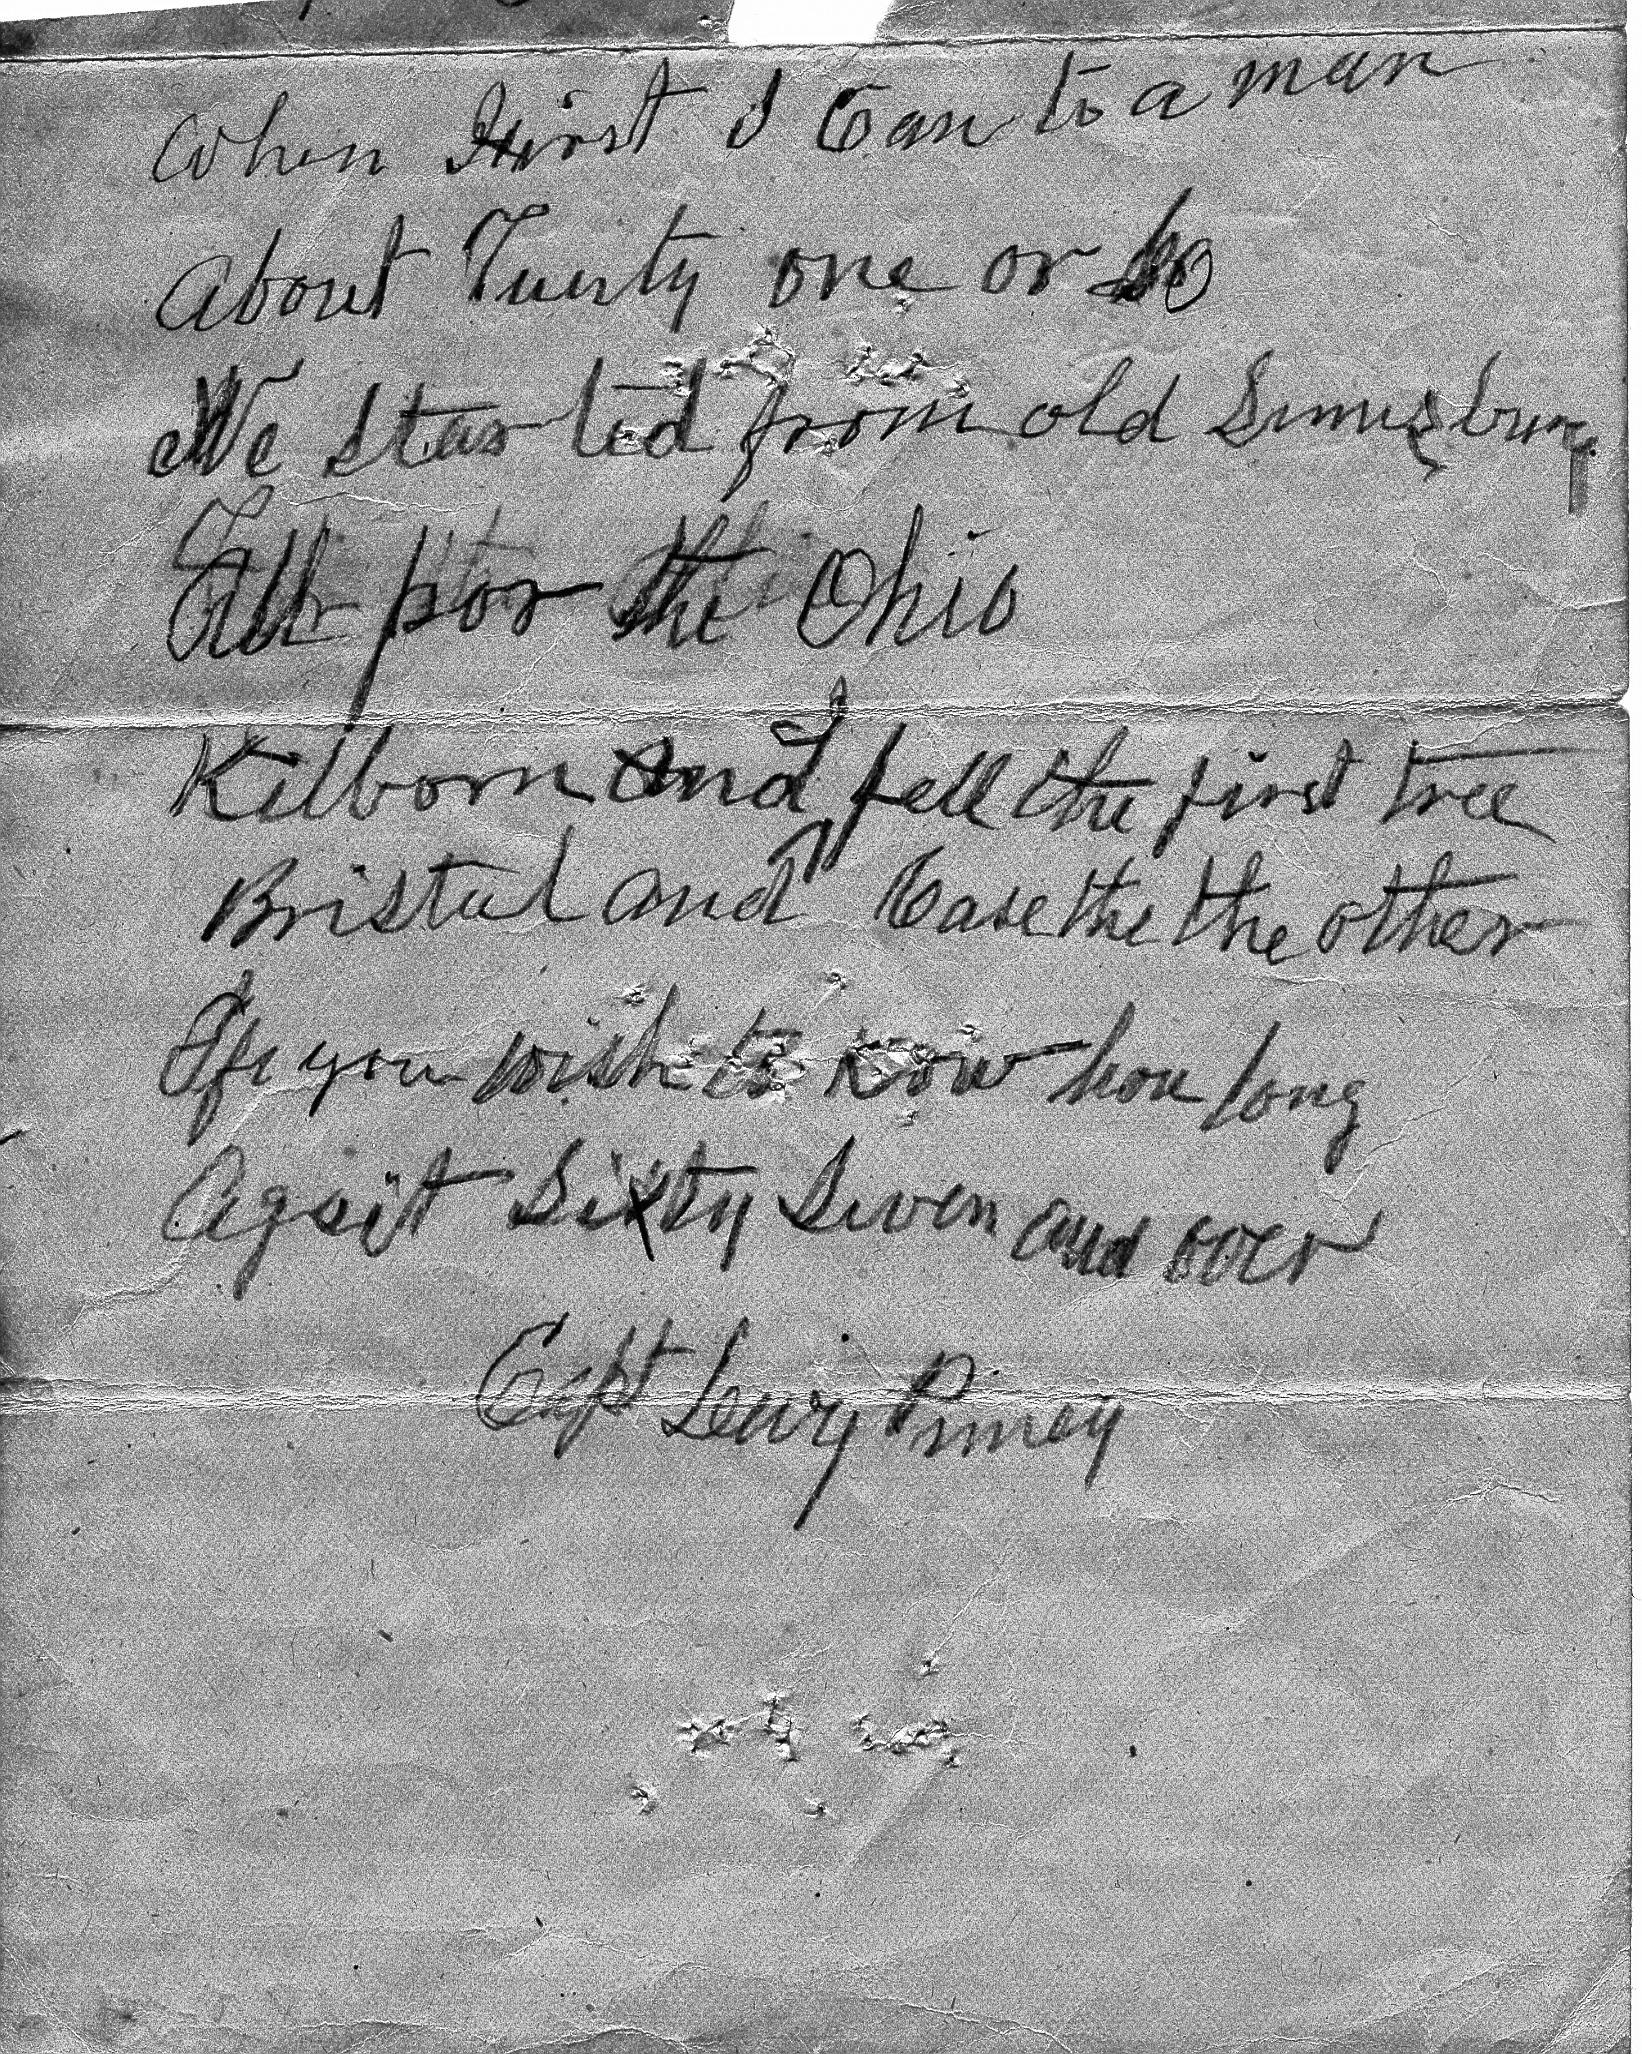 When First I Cam to a man
About Twenty one or So
We started from old Simsbury
All for the Ohio
Kilborn and I fell the first tree
Bristul and Case the the other
If you wish to know how long
Agoit Sixty Seven and over
Capt Levy Pinney